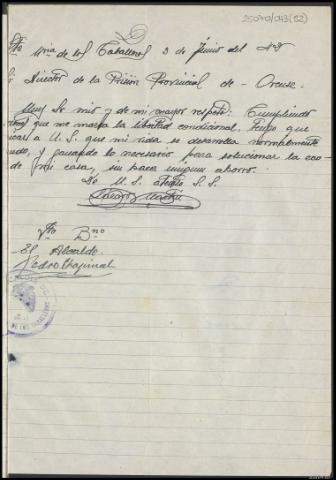 25070/013 (52)
Mría de los Caballeros 3 de Junio del 43
Director de la Prisión Provincial de - Orense.
Muy Sr mio y de mi mayor respeto: Cumpliendo
que me marca la libertad condicional, tengo que
a U. S. que mi vida se desarrolla normalmente
y ganando lo necesario para solucionar la
de mi casa, sin hacer ningun ahorro.
De U. S. atento S. S.
Vto Bno
El Alcalde.
Pedro Espinal
DE LOS CABALLEROS